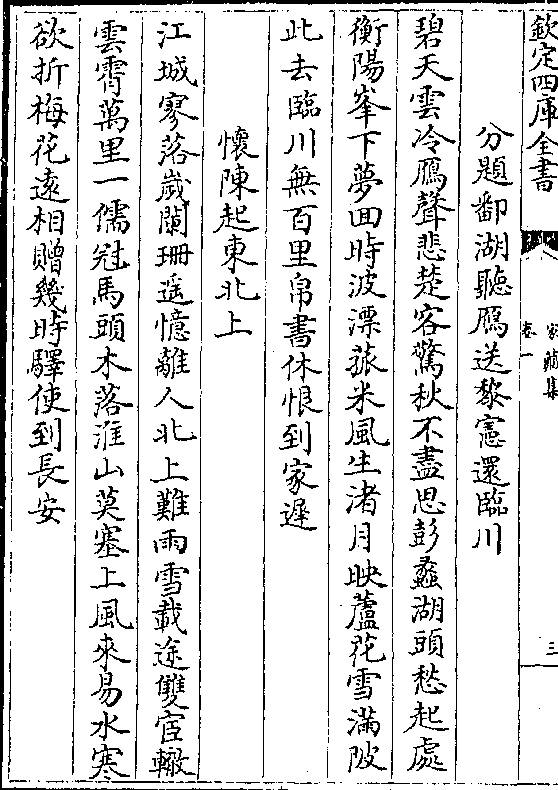 欽定四庫全書
家藏集
卷一
三
分題鄱湖聽鴈送黎憲還臨川
碧天雲冷鴈聲悲楚客驚秋不盡思彭蠡湖頭愁起處
衡陽峯下夢回時波漂菰米風生渚月映蘆花雪滿陂
此去臨川無百里帛書休恨到家遲
懷陳起東北上
江城寥落嵗闌珊遥憶離人北上難雨雪載途雙宦轍
雲霄萬里一儒冠馬頭木落淮山莫塞上風來易水寒
欲折梅花遠相贈幾時驛使到長安